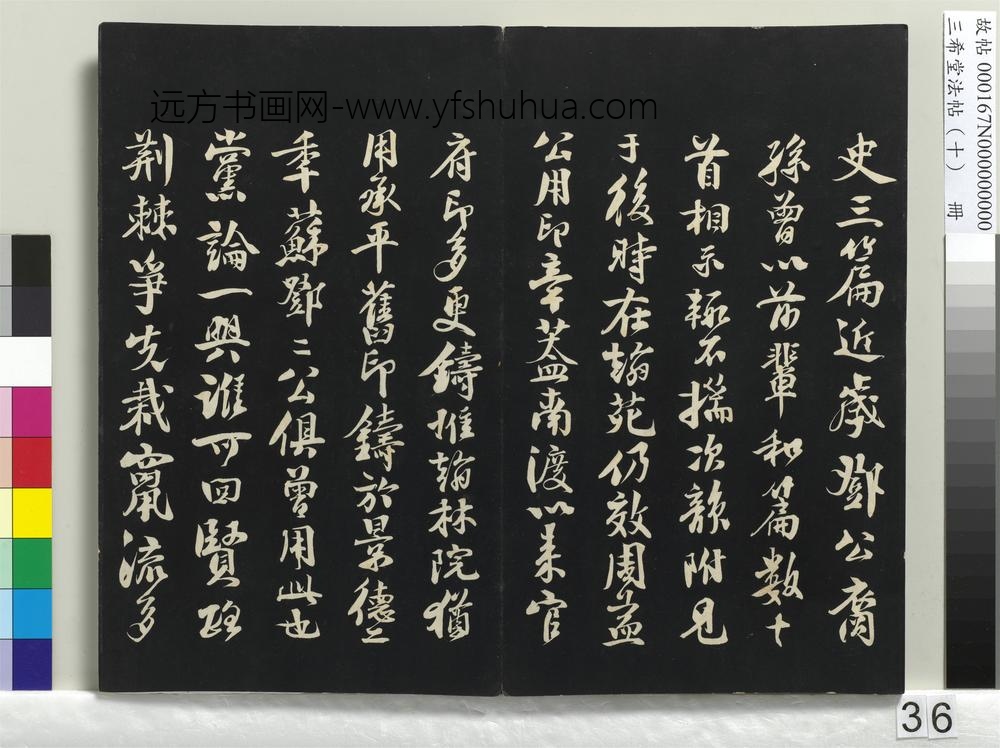 史三篇近歲鄧公裔
孫曾以前輩和篇數十
首相示輒不揣次韻附見
于後時在翰苑仍效周益
公用印章蓋南渡以来官
府印多更鑄惟翰林院猶
用承平舊印鑄於景德二
季蘇鄧二公俱曾用此也
黨論一興誰可回賢路
荆棘爭先栽竄流多
远方书画网-www.yfshuhua.com
故帖000167N000000000
三希堂法帖(十) 冊
36